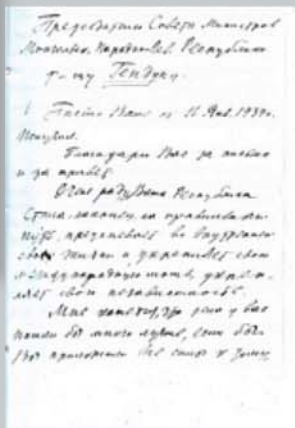 Председателю Совета Министров
Монгольск. Народной Республики
т-щу Гендуну.
Письмо Ваше от 16 Янв. 1934 г.
получил.
Благодарю Вас за письмо
и за привет.
Очень рад, Ваша Республика
стала, наконец, на правильный
путь, преуспевает во внутренней
своей жизни и укрепляет свою
международную мощь, укреп-
ляет свою независимость.
Мне кажется, что дела у вас
пошли бы много лучше, если бы
Вы приложили все силы к тому